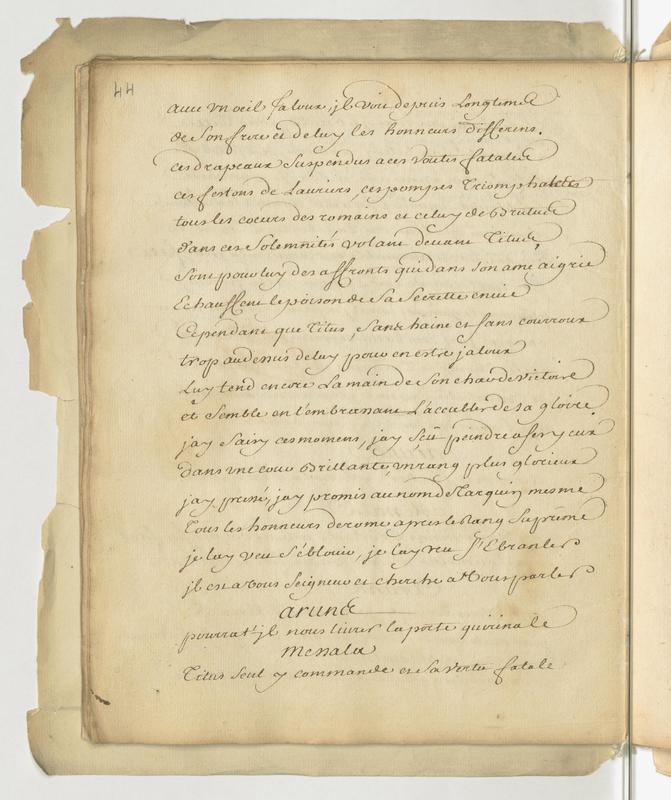 44
avec vn oeil jaloux, jl voit depuis Longtems
de Son frere et de luy les honneurs differens.
ces drapeaux Suspendus a ces voutes fatales
ces festons de Lauriers, ces pompes Triomphales
tous les coeurs des romains et celuy de Brutus
dans ces Solemnités volant devant Titus
Sont pour luy des affronts qui dans son ame aigrie
Echauffent le poison de Sa Secrette envie
Cependant que Titus, Sans haine et sans courroux
trop audessus de luy pour en estre jaloux
Luy tend encore La main de Son char de victoire
et Semble en l'embrassant L'accabler de sa gloire.
jay Saisy ces momens, jay Sçû peindre a ses yeux
dans vne cour Brillante, vn rang plus glorieux
jay pressé, jay promis au nom de Tarquin mesme
Tous les honneurs de rome apres le Rang Suprême
je lay veu S'éblouir, je lay veu S'Ebranler
jl est a vous Seigneur et cherche a Vous parler
aruns
pourrat'jl nous livrer la porte quirinale
Messala
Titus Seul y commande et sa vertu fatale